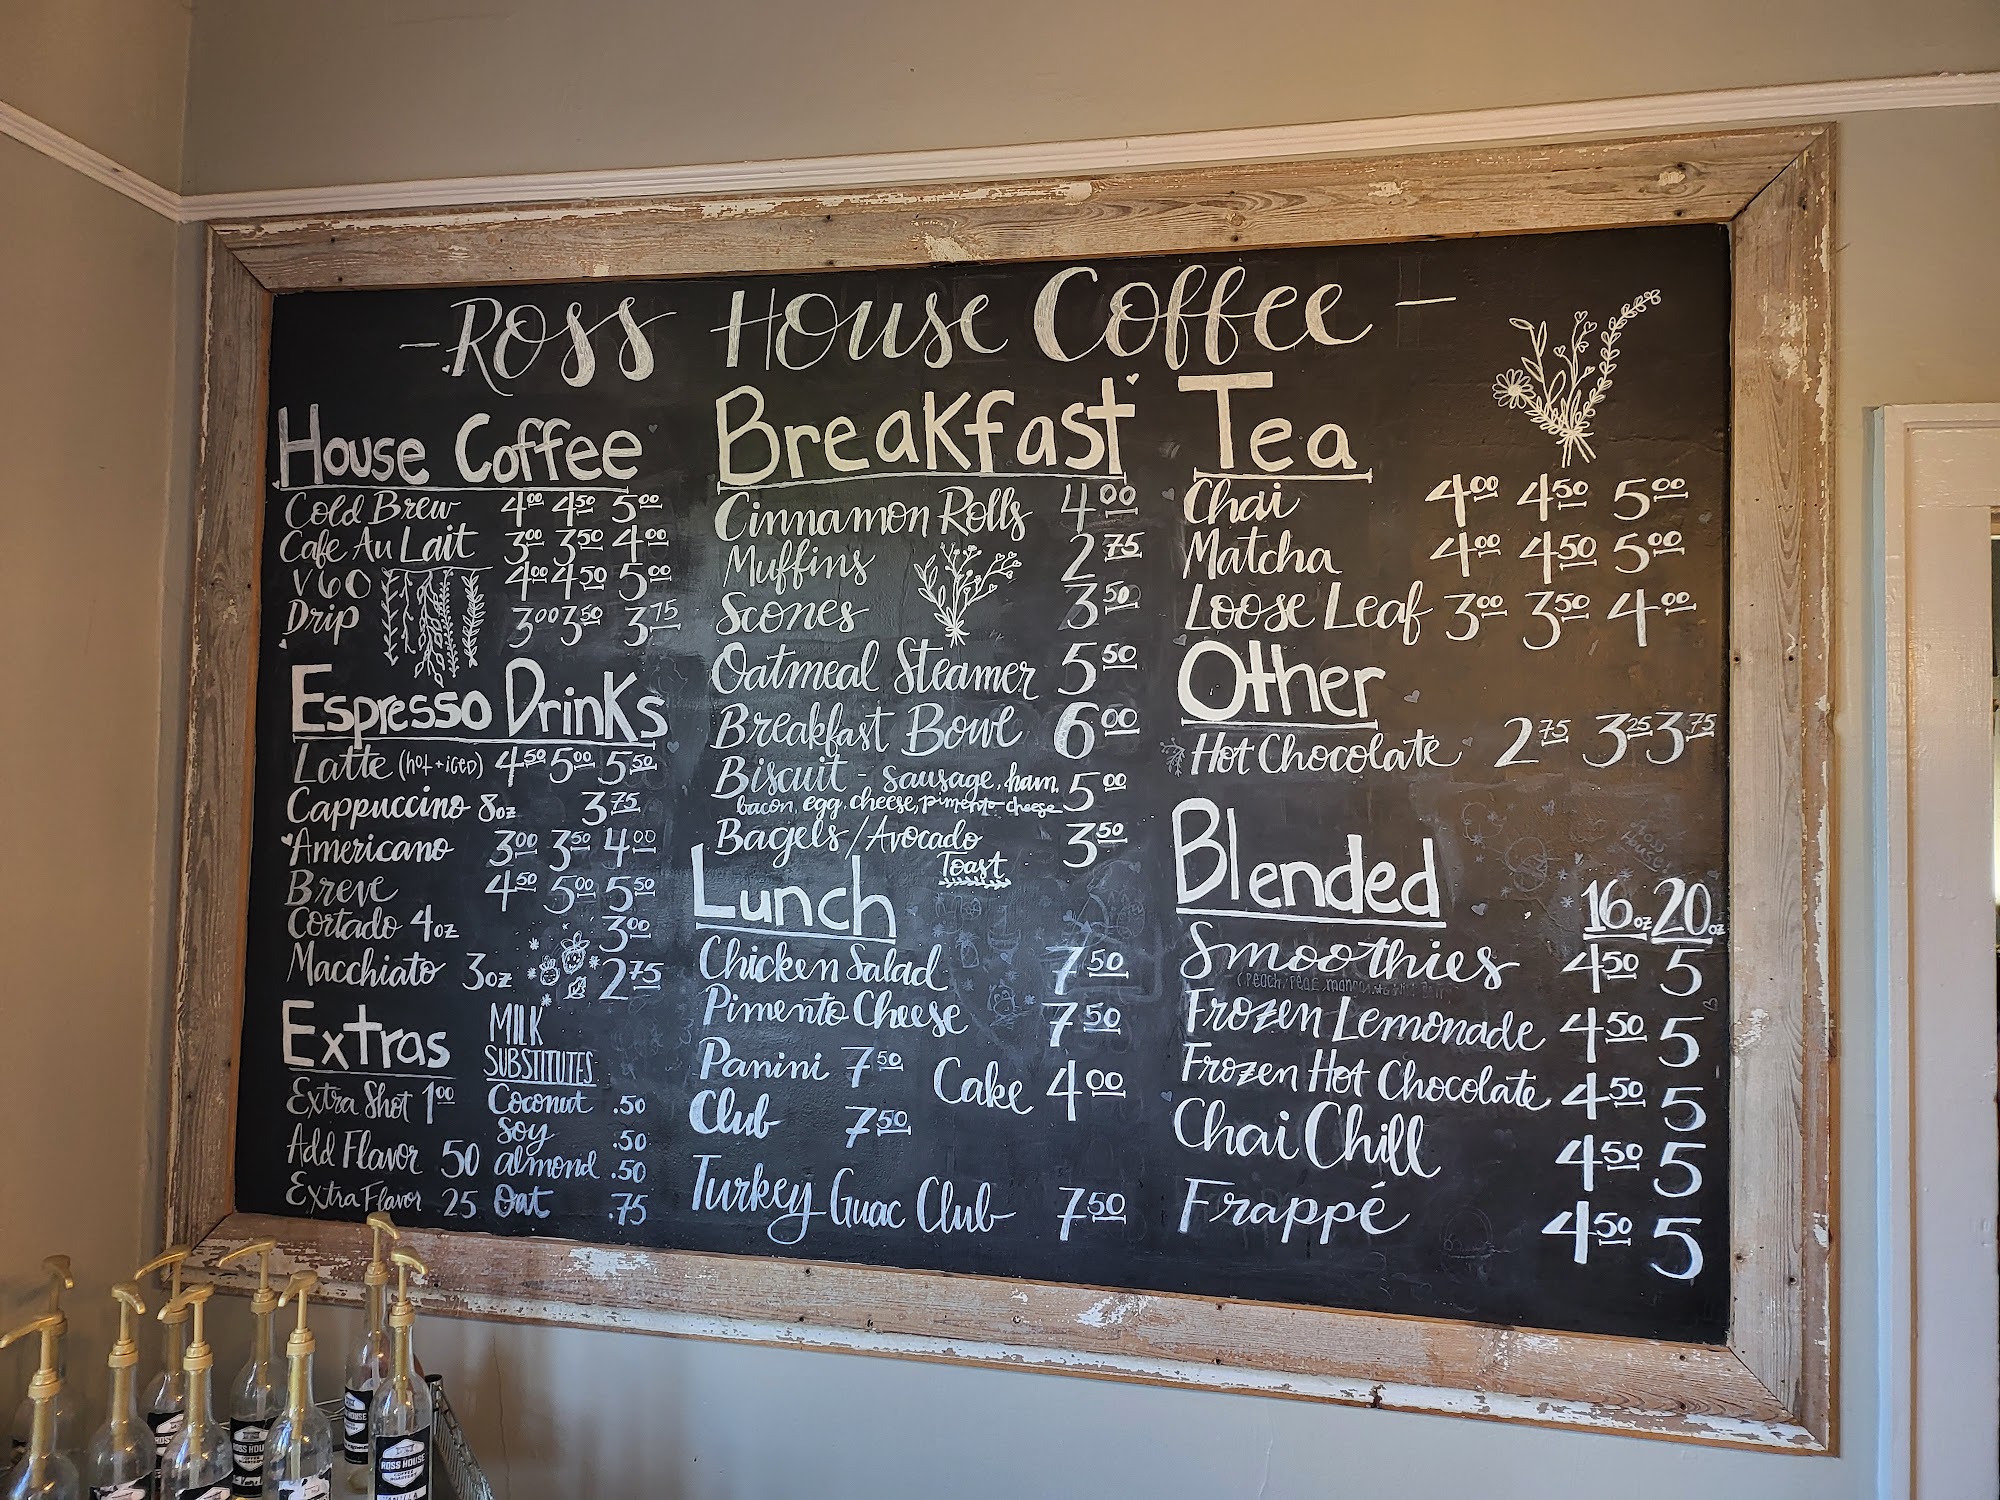 -Ross House Coffee-
House Coffee
Cold Brew 4.00 4.50 5.00
Cafe Au Lait 3.00 3.50 4.00
V60 4.00 4.50 5.00
Drip 3.00 3.50 3.75
Espresso Drinks
Latte (hot + iced) 4.50 5.00 5.50
Cappuccino 8oz 3.75
Americano 3.00 3.50 4.00
Breve 4.50 5.00 5.50
Cortado 4oz 3.00
Macchiato 3oz 2.75
Extras
Extra Shot 1.00
Add Flavor 50
Extra Flavor 25
MILK
SUBSTITUTES
Coconut .50
Soy .50
almond .50
Oat .75
Breakfast
Cinnamon Rolls 4.00
Muffins 2.75
Scones 3.50
Oatmeal Steamer 5.50
Breakfast Bowl 6.00
Biscuit - sausage, ham, 5.00
bacon, egg, cheese, pimento cheese
Bagels/Avocado 3.50
Toast
Lunch
Chicken Salad 7.50
Pimento Cheese 7.50
Panini 7.50
Cake 4.00
Club 7.50
Turkey Guac Club 7.50
Tea
Chai 4.00 4.50 5.00
Matcha 4.00 4.50 5.00
Loose Leaf 3.00 3.50 4.00
Other
Hot Chocolate 2.75 3.25 3.75
Blended
16oz 20oz
Smoothies 4.50 5
Frozen Lemonade 4.50 5
Frozen Hot Chocolate 4.50 5
Chai Chill 4.50 5
Frappé 4.50 5
ROSS HOUSE
COFFEE